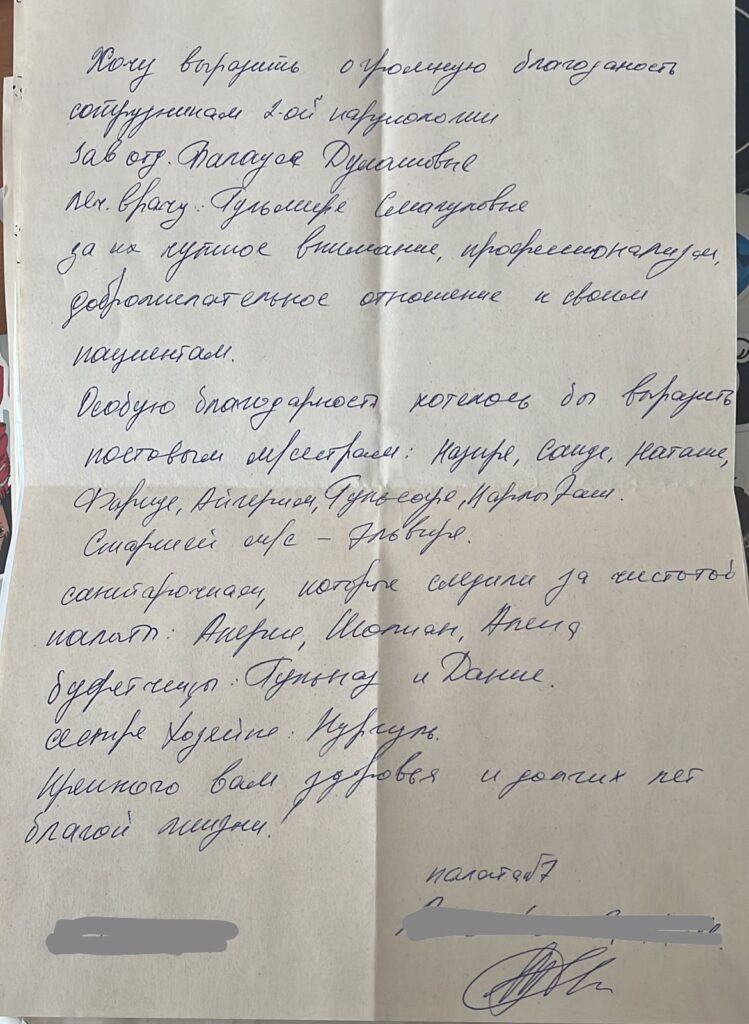 Хочу выразить огромную благоданость
сотрудникам 2-ой
зав отд. Балауса Дулатовне
леч. врачу: Гульмире Смагуловне
за их чуткое внимание, профессионализм,
доброжелательное отношение к своим
пациентам.
Особую благодарность хотелось бы выразить
постовым м/сестрам: Назире, Саиде, Наташе,
Фариде, Айгерим, Гульсаре, Карлыгаш.
Старшей м/с – Эльвире.
санитарочкам, которые следили за чистотой
палаты: Шолпан, Алена
буфетчицы: Гульназ и Дание.
сестре хозяйке: Нургуль.
Крепкого вам здоровья и долгих лет
благой жизни!
палата 7